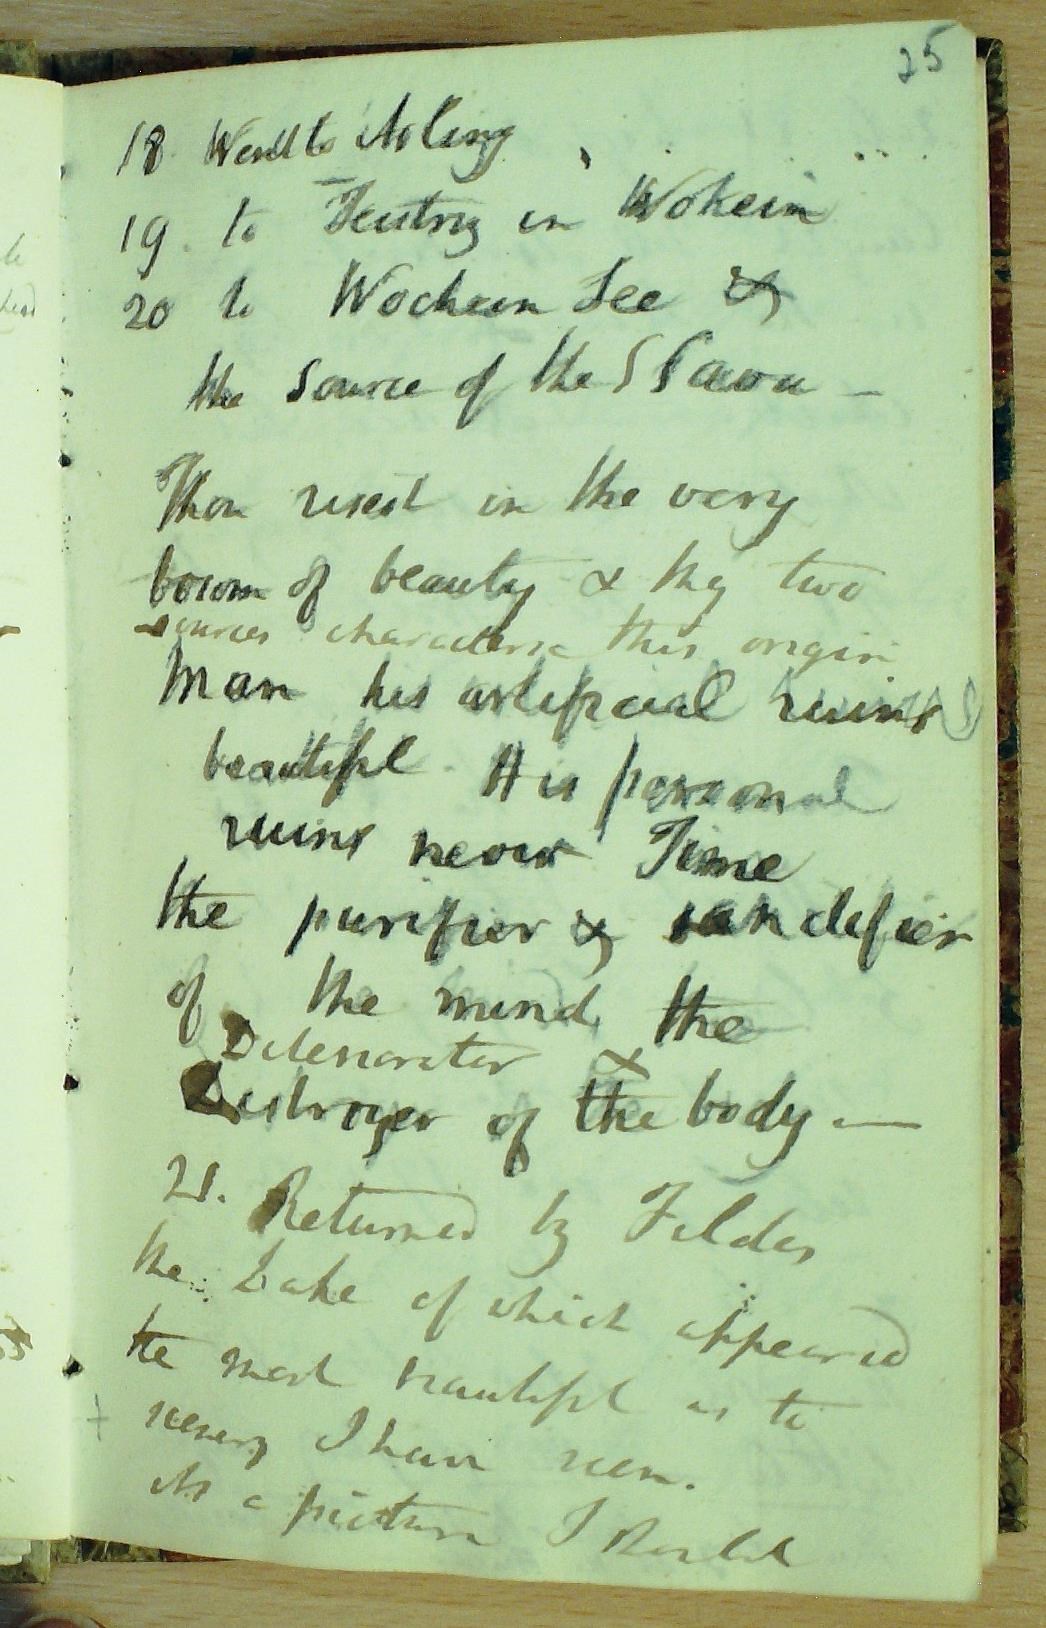 25
18 Went to Asling
19. to Feistriz in Wokein
20 to Wochein See &
the source of the Sava —
Thou risest in the very
bosom of beauty & thy two
sources characterise this origin
Man his artificial ruins
beautiful. His personal
ruins never Time
the purifier & sanctifier
of the mind, the
Deteriorator &
Destroyer of the body —
21. Returned by Feldes
the Lake of which appeared
the most beautiful as to
scenery I have seen.
As a picture I